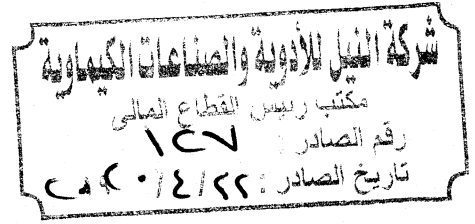 شركة النيل للأدوية والصناعات الكيماوية
مكتب رئيس القطاع المالى
رقم الصادر : ١٤٧
تاريخ الصادر : ٢٠٢٠/٤/٢٢